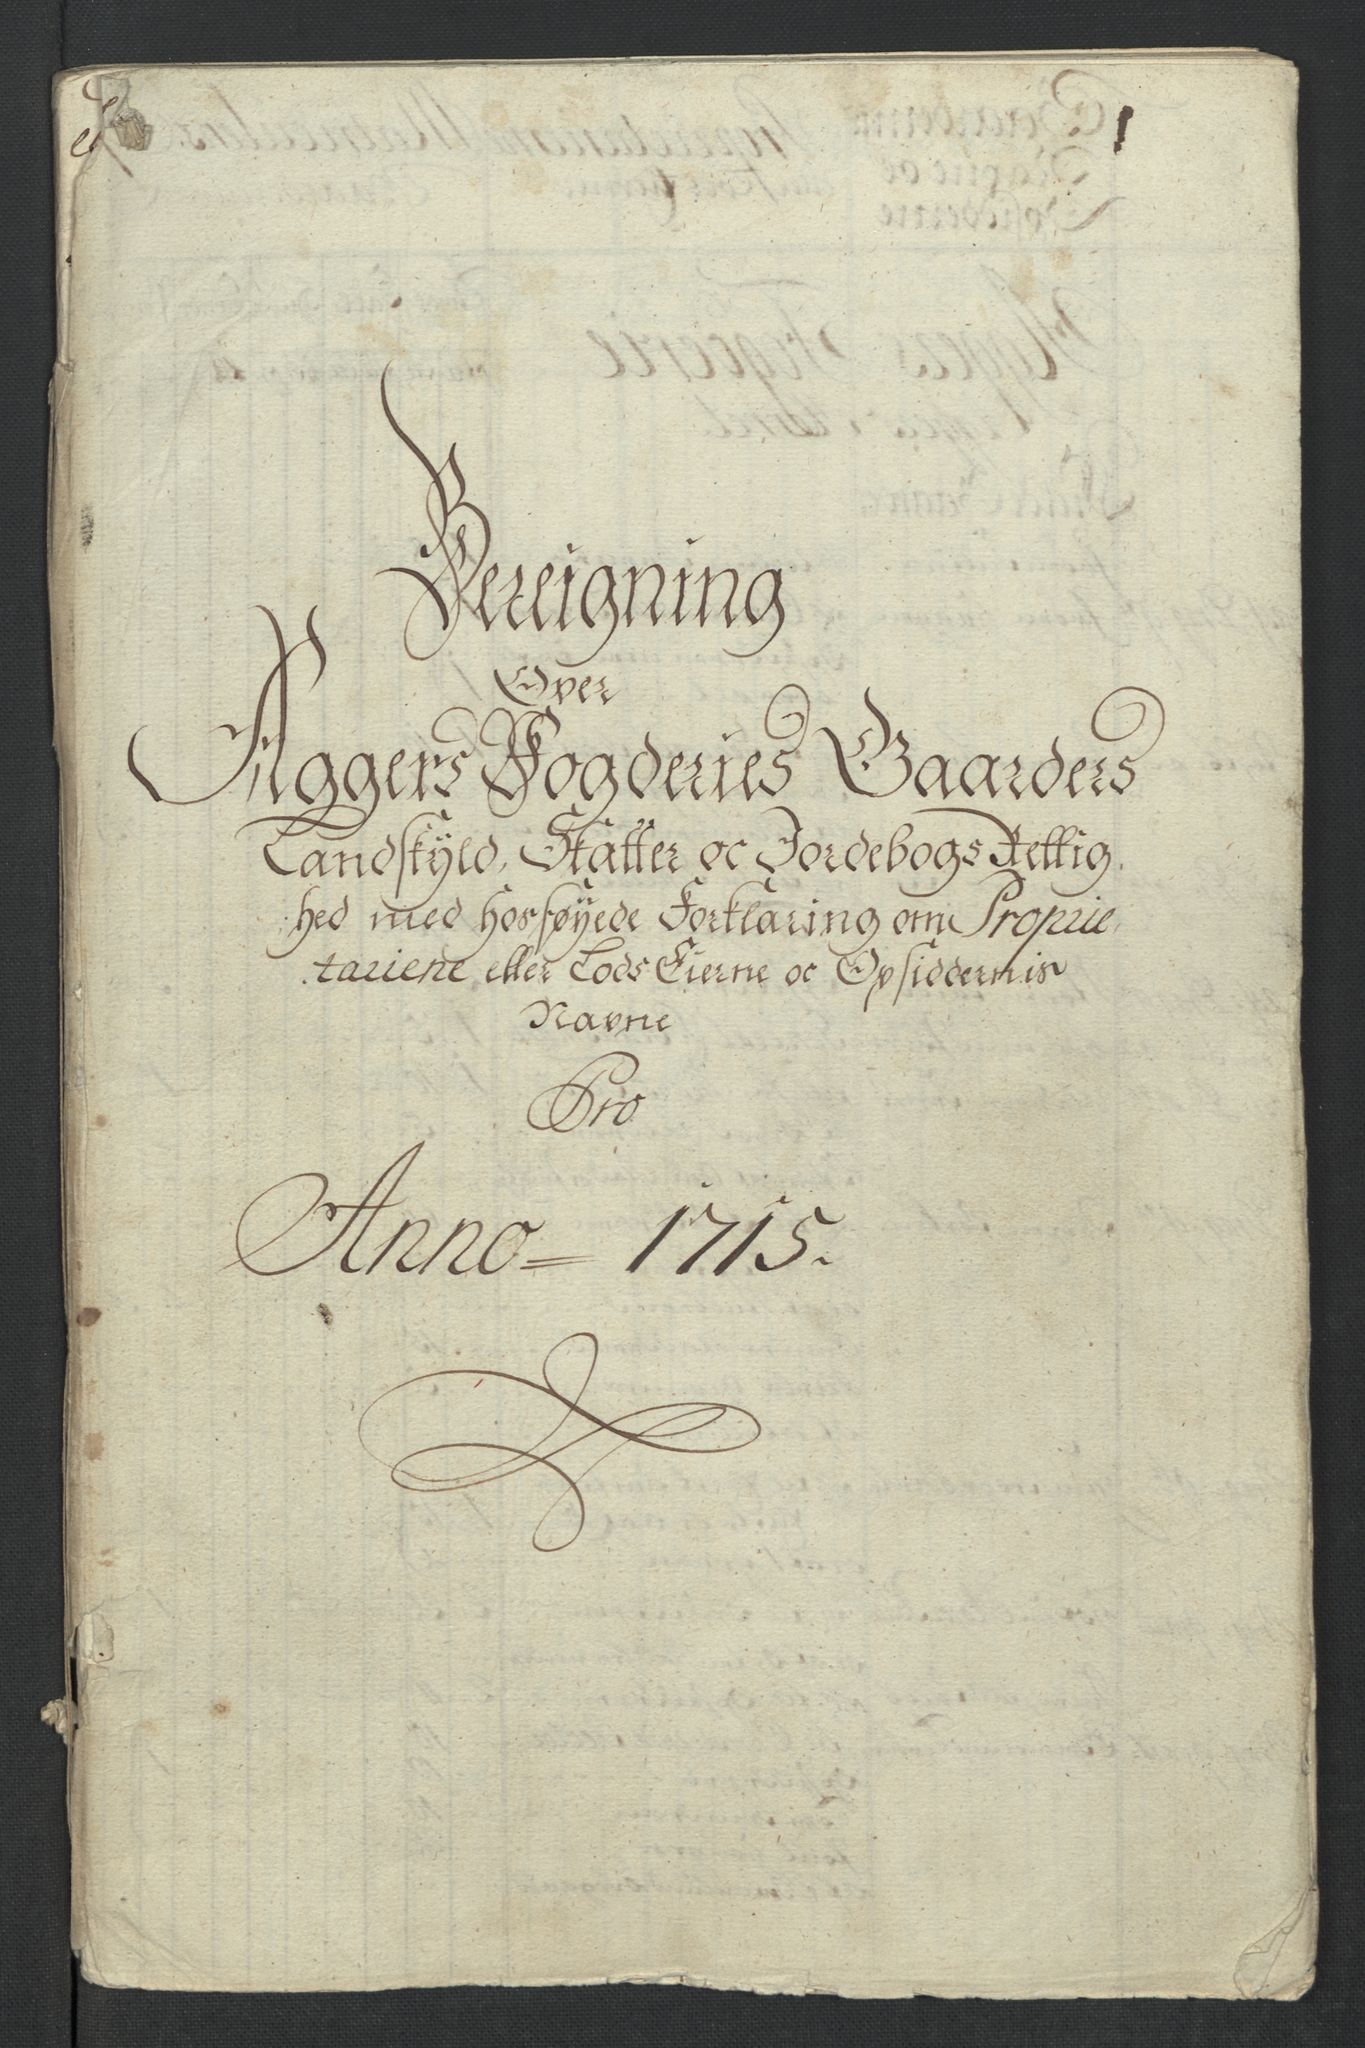 1
Bereigning
Over
Aggers Fogderies Gaarders
Landskÿld, Skatter oc Jordebogs Rettig
hed med hosføyede Forklaring om Proprie
tariene eller Lods Eierne oc Opsiddernis
Navne
Pro
Anno = 1715.